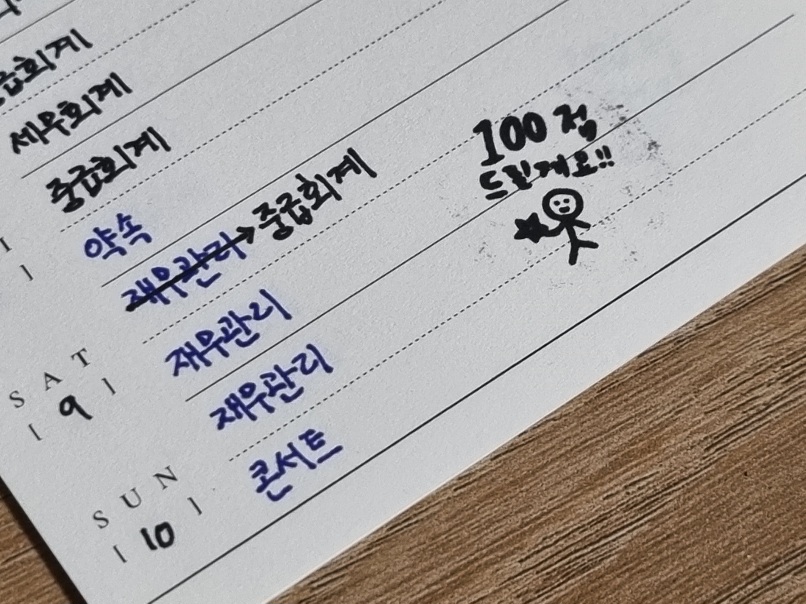 급회계
세무회계
중급회계
약속
재무관리→중급회계
SAT
9
재무관리
재무관리
SUN
10
콘서트
100점
드릴게요!!